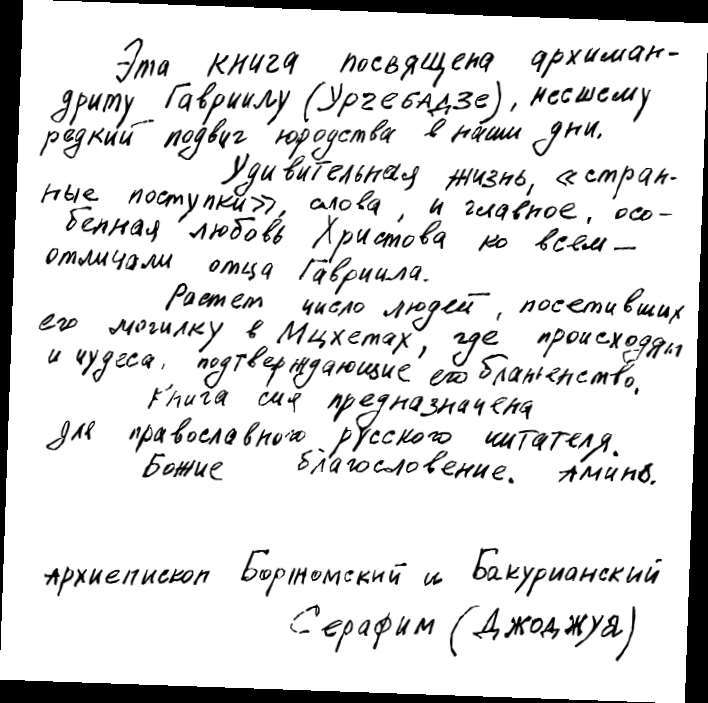 Эта книга посвящена архиман-
дриту Гавриилу (Ургебадзе), несшему
редкий подвиг юродства в наши дни.
Удивительная жизнь, «стран-
ные поступки», слова, и главное, осо-
бенная любовь Христова ко всем —
отличали отца Гавриила.
Растет число людей, посетивших
его могилку в Мцхетах, где происходят
и чудеса, подтверждающие его блаженство.
Книга сия предназначена
для православного русского читателя.
Божие благословение. Аминь.
Архиепископ Боржомский и Бакурианский
Серафим (Джоджуа)